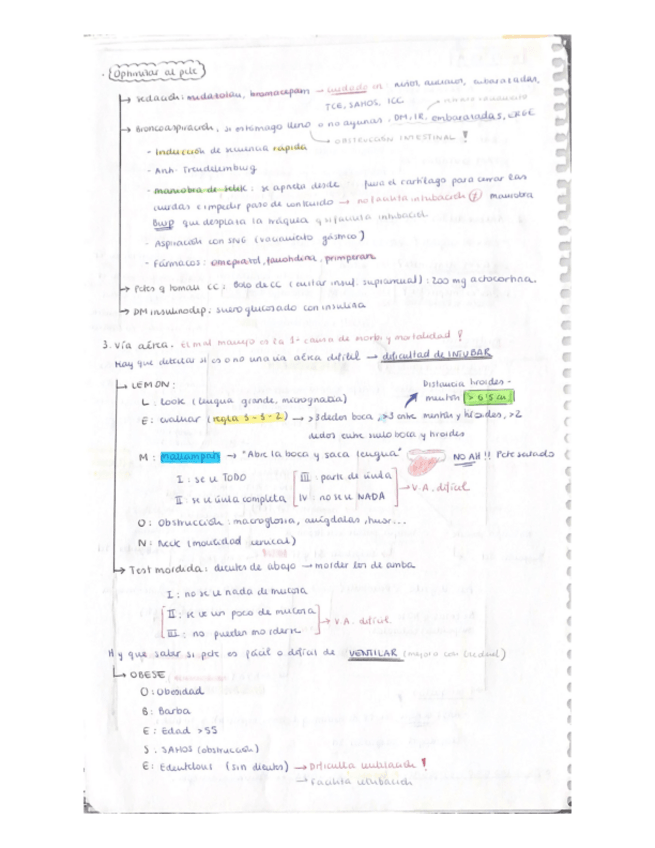 Optimizar al pcte
→ Sedación: midazolam, bromacepam → cuidado en: ancianos, embarazadas,
TCE, SAHOS, ICC
→ Broncoaspiración, si estómago lleno o no ayunas. DM, IR, embarazadas, ERGE
→ OBSTRUCCIÓN INTESTINAL !
- Inducción de secuencia rápida
- Anti-Trendelemburg
- maniobra de Selick: se aprieta desde fuera el cartílago para cerrar
cuerdas e impedir paso de contenido → no facilita intubación ≠ maniobra
Burp que desplaza la tráquea y si facilita intubación
- Aspiración con SNG (vaciamiento gástrico)
- Fármacos: omeprazol, primperan
→ Pctes q toman CC: Bolo de CC (evitar insuf. suprarrenal): 200 mg actocortina.
→ DM insulinodep: suero glucosado con insulina
3. Vía aérea. El mal manejo es la 1ª causa de morbi y mortalidad !
Hay que detectar si es o no una vía aérea difícil → dificultad de INTUBAR
→ LEMON:
L: Look (lengua grande, micrognatia)
Distancia hioides -
mentón > 5'5 cm
E: evaluar (regla 3-3-2) → >3 dedos boca, >3 entre mentón y hioides, >2
dedos entre suelo boca y hioides
M: mallampati → "Abre la boca y saca lengua" NO AH!! Pcte sentado
I: se ve TODO
III: parte de úvula
II: se ve úvula completa
IV: no se ve NADA
→ V.A. difícil
O: Obstrucción: macroglosia, amígdalas, tumor...
N: Neck (movilidad cervical)
→ Test mordida: dientes de abajo → morder los de arriba
I: no se ve nada de mucosa
II: se ve un poco de mucosa
III: no pueden morderse
→ V.A. difícil
Hay que saber si pcte es fácil o difícil de VENTILAR
→ OBESE
O: Obesidad
B: Barba
E: Edad >55
S: SAHOS (obstrucción)
E: Edentulous (sin dientes) → Dificulta ventilación !
→ Facilita intubación